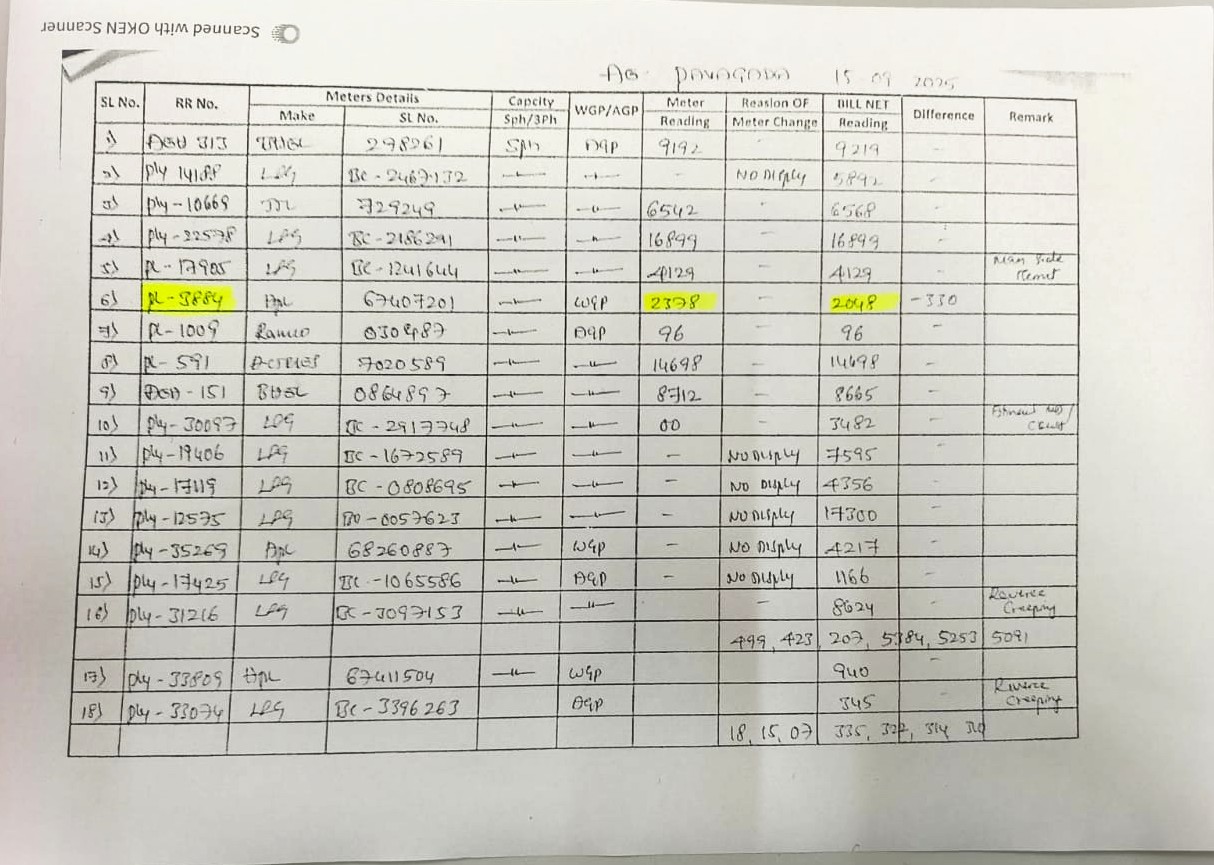 Scanned with OKEN Scanner
PAVAGADA 15 09 2025
SL No. RR No. Meters Details Capcity WGP/AGP Meter Reasion OF BILL NET Difference Remark
Make SL No. Sph/3Ph Reading Meter Change Reading
1) 313 298261 Sph AGP 9192 - 9219 -
2) Ply 14188 L&G BC - 2467132 -"- -"- - NO DISPLY 5892 -
3) Ply - 10669 729249 -"- -"- 6542 - 6568 -
4) Ply - 32578 L&G BC - 2186291 -"- -"- 16899 - 16899 -
5) PL - 17905 L&G BC - 1241644 -"- -"- 4129 - 4129 -
6) PL - 3884 HPL 67407201 -"- WGP 2378 - 2048 -330
7) PL - 1009 0308487 -"- AGP 96 - 96 -
8) PL - 591 7020589 -"- -"- 14698 - 14698 -
9) - 151 BHEL 0864897 -"- -"- 8712 - 8665 -
10) Ply - 30097 L&G BC - 2917748 -"- -"- 00 - 3482 -
11) Ply - 19406 L&G BC - 1672589 -"- -"- - NO DISPLY 7595 -
12) Ply - 17119 L&G BC - 0808695 -"- -"- - NO DISPLY 4356 -
13) Ply - 12575 L&G BO - 0057623 -"- -"- NO DISPLY 17300 -
14) Ply - 35269 HPL 68260887 -"- WGP - NO DISPLY 4217 -
15) Ply - 17425 L&G BC - 1065586 -"- AGP - NO DISPLY 1166 -
16) Ply - 31216 L&G BC - 3097153 -"- -"- - 8624 - Reverse Creeping
499, 423, 207, 5384, 5253 5091
17) Ply - 33809 HPL 67411504 -"- WGP 940 -
18) Ply - 33074 L&G BC - 3396263 AGP 345 - Riverce Creeping
18, 15, 07 335, 322, 314